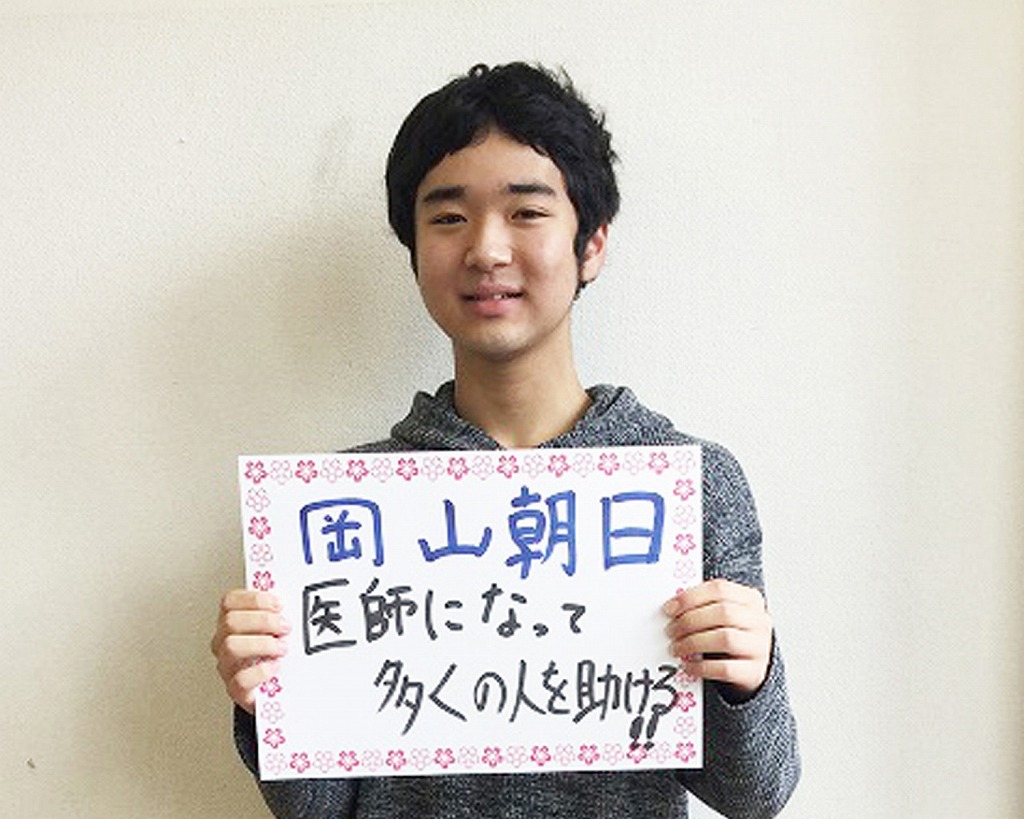 岡山朝日
医師になって
多くの人を助ける!!